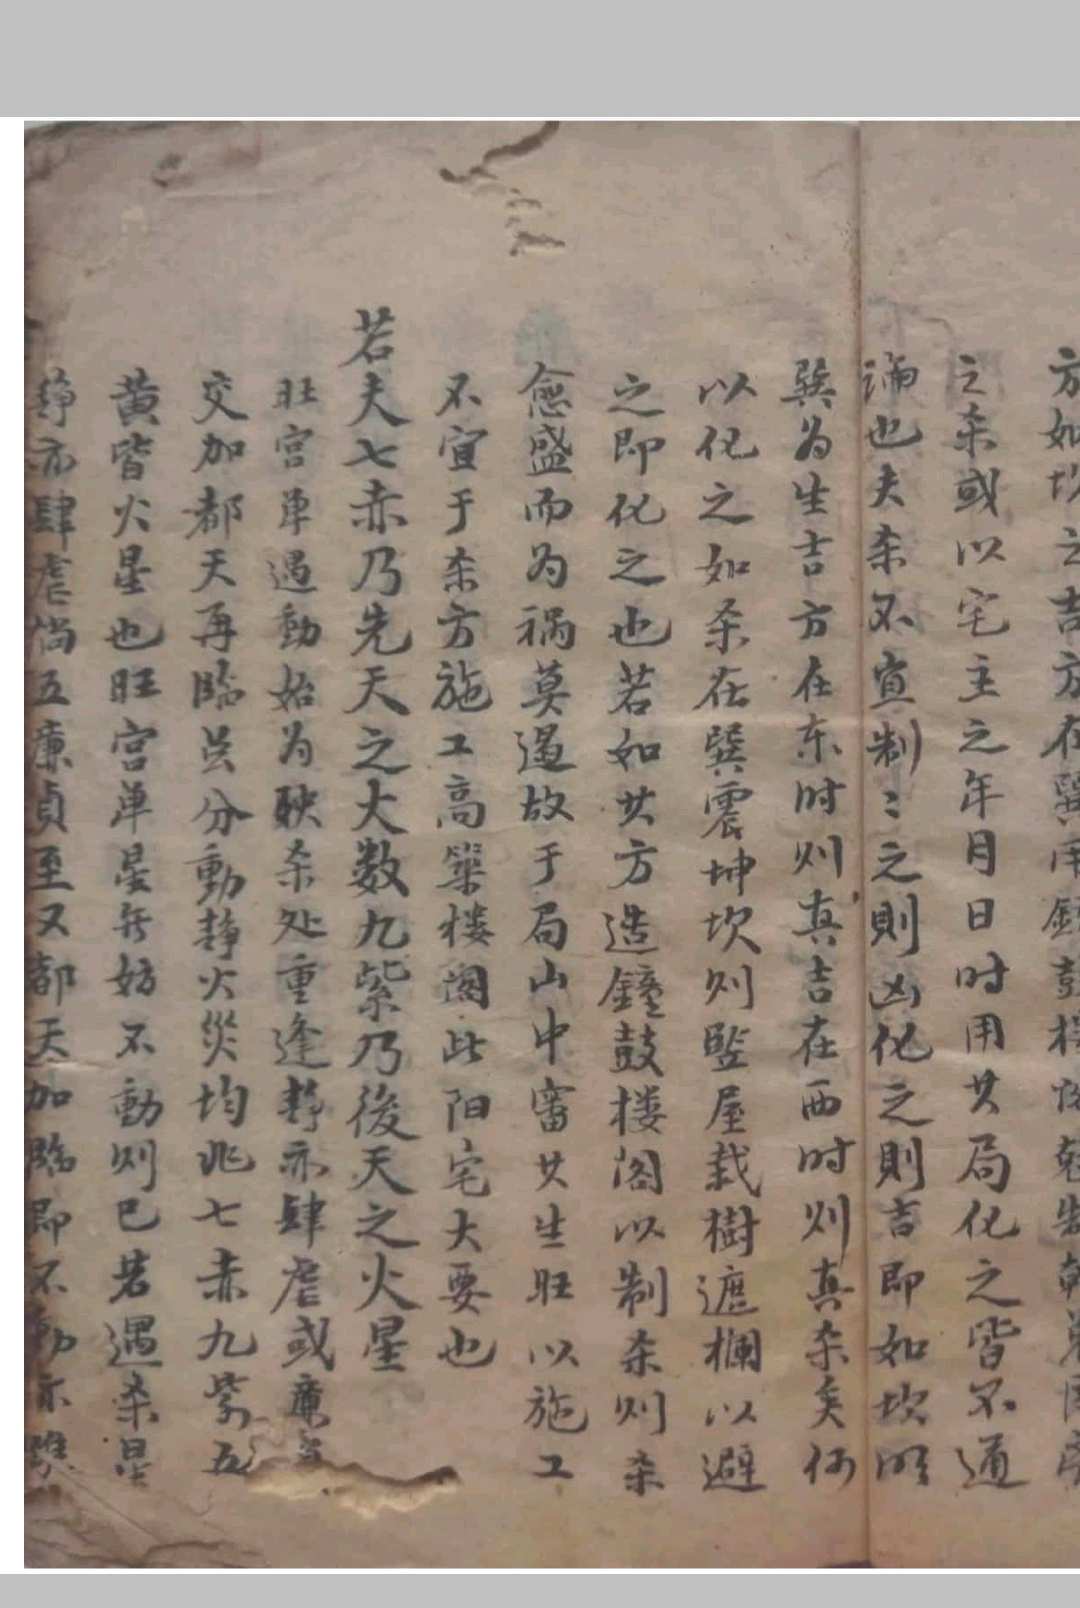 方如坎之吉方在巽用鐘鼓楼
之杀或以宅主之年月日时用其局化之皆不通
論也夫杀不宜制〻之則凶化之則吉即如坎
巽为生吉方在东时则真吉在西时则真杀矣何
以化之如杀在巽震坤坎则监屋栽樹遮欄以避
之即化之也若如其方造鐘鼓楼阁以制杀则杀
愈盛而为祸莫遏故于局山中審其生旺以施工
不宜于杀方施工高築楼阁此阳宅大要也
若夫七赤乃先天之大数九紫乃後天之火星
旺宫单遇動始为殃杀处重逢静亦肆虐或廉貞
交加都天再臨总分動静火災均兆七赤九紫五
黄皆火星也旺宫单星无妨不動则已若遇杀星
静亦肆虐倘五廉貞至又都天加臨即不動亦